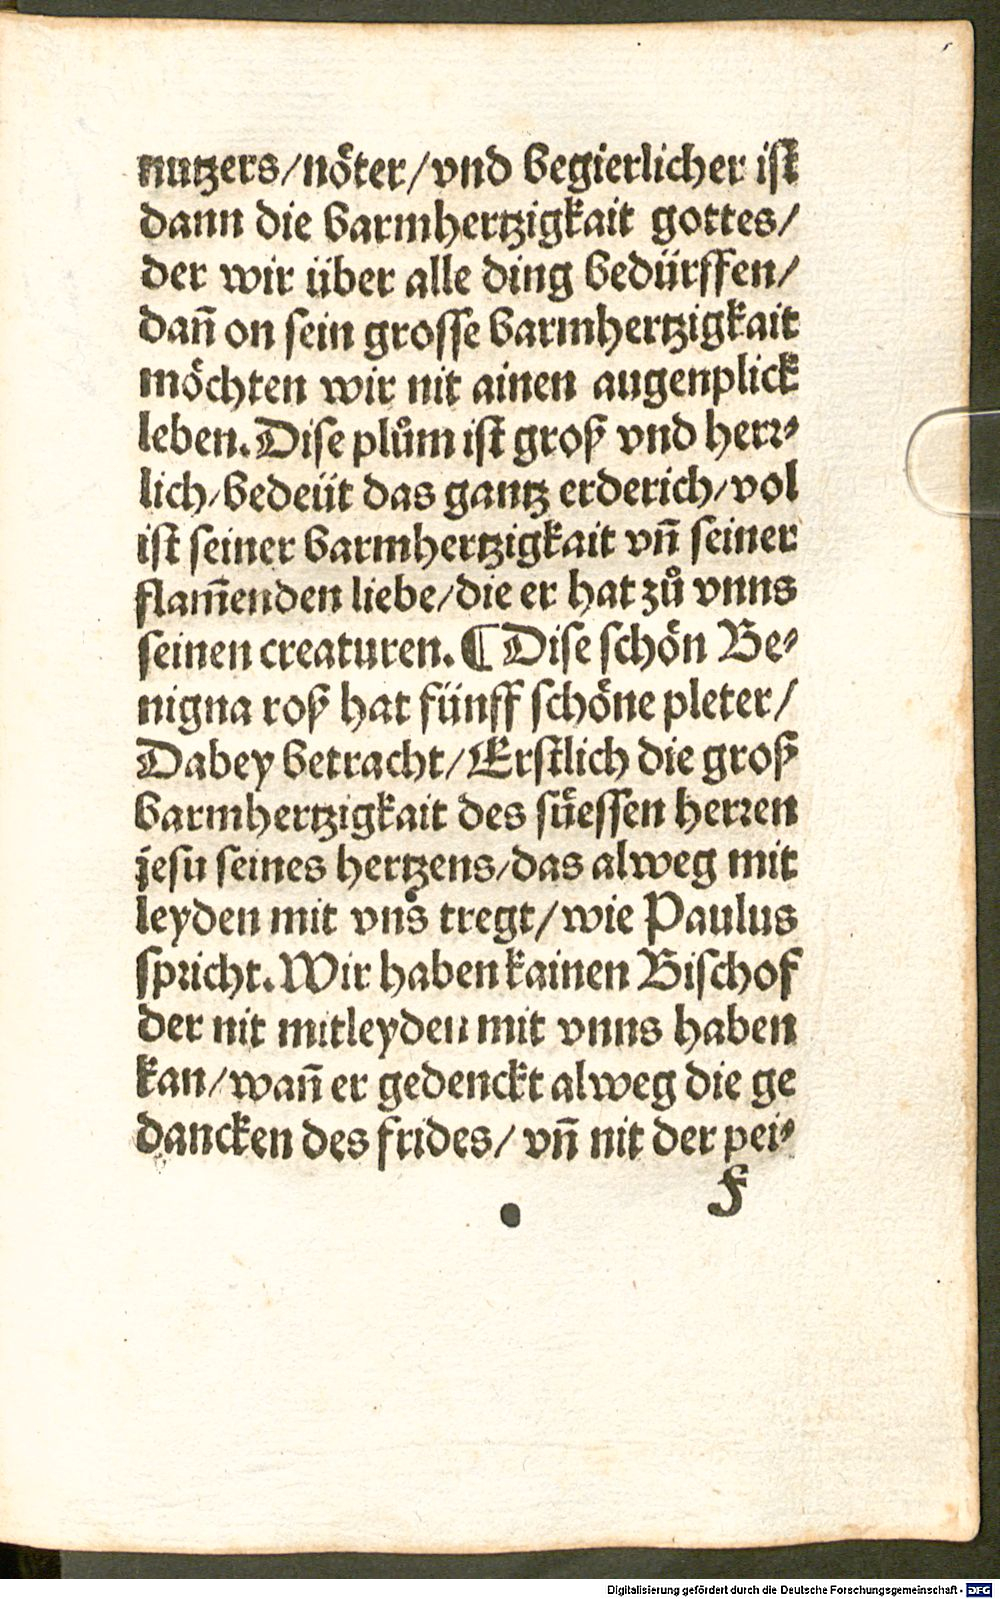 nutzers/nöter/vnd begierlicher ist
dann die barmhertzigkait gottes/
der wir über alle ding bedürffen/
dañ on sein grosse barmhertzigkait
möchten wir nit ainen augenplick
leben. Dise plům ist groß vnd herr⸗
lich/bedeüt das gantz erderich/vol
ist seiner barmhertzigkait vñ seiner
flam̄enden liebe/die er hat zů vnns
seinen creaturen. ¶ Dise schön Be⸗
nigna roß hat fünff schöne pleter/
Dabey betracht/Erstlich die groß
barmhertzigkait des süessen herren
jesu seines hertzens/das alweg mit
leyden mit vns tregt/wie Paulus
spricht. Wir haben kainen Bischof
der nit mitleyden mit vnns haben
kan/wañ er gedenckt alweg die ge
dancken des frides/vñ nit der pei⸗
f
Digitalisierung gefördert durch die Deutsche Forschungsgemeinschaft - DFG